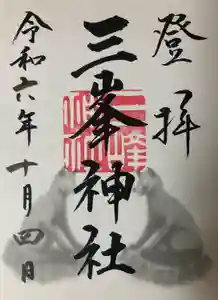 登拝
三峯神社
令和六年十月四日
三峰